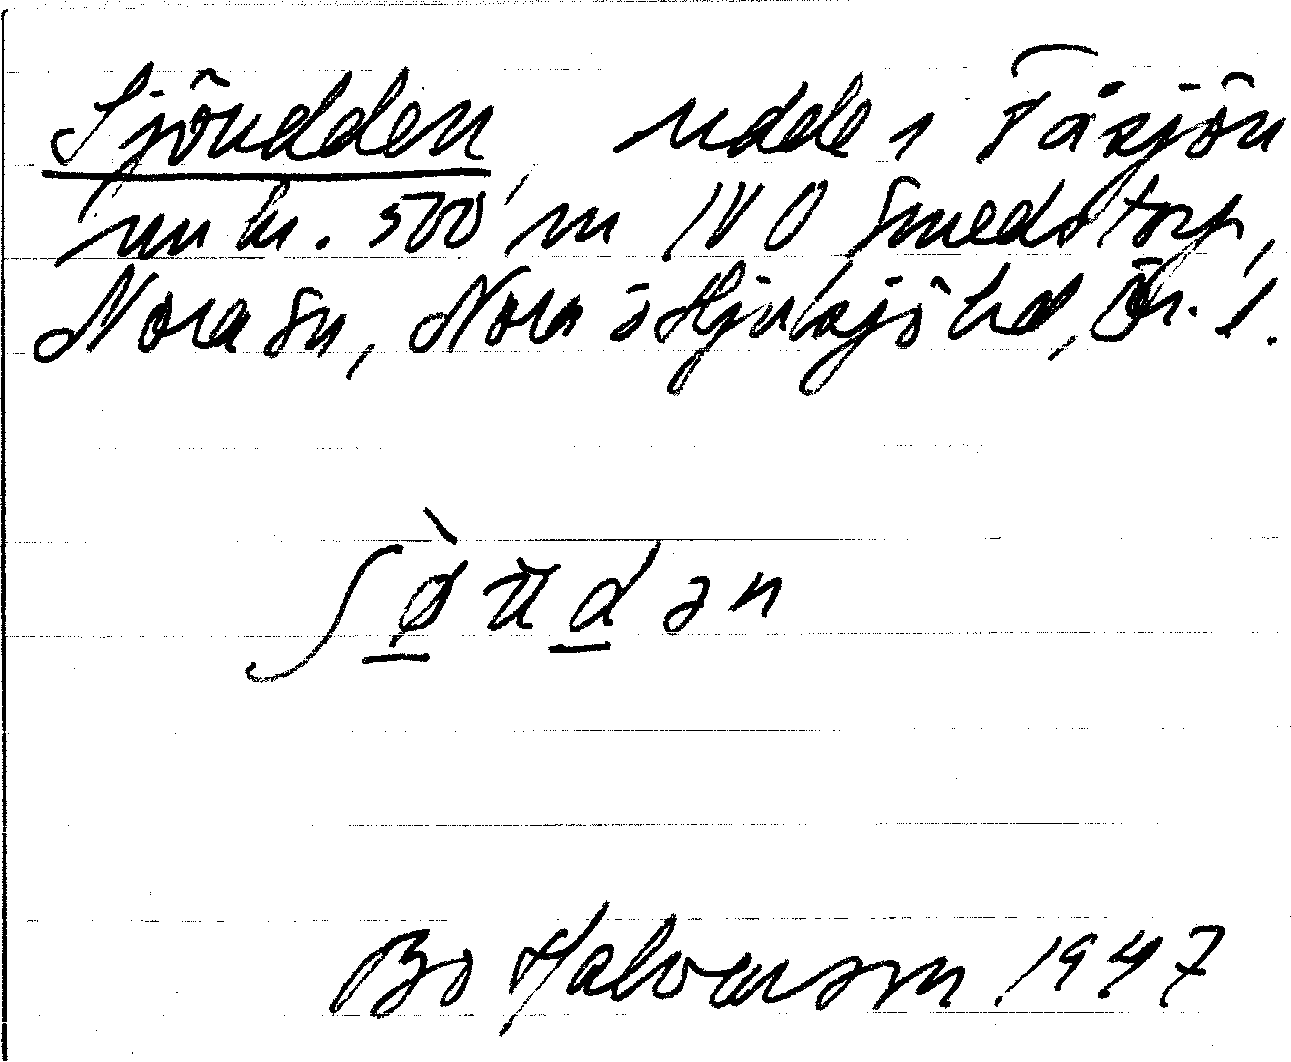 Sjöudden, udde i Tåsjön
um kr. 500 m NO Smedstorp,
Nora sn, Nora o Hjulsjö hd, Ör. l.
ʃø̀ʉdən
Bo Halvarson 1947